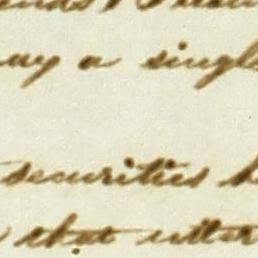 ay a singl
securities h
that utter